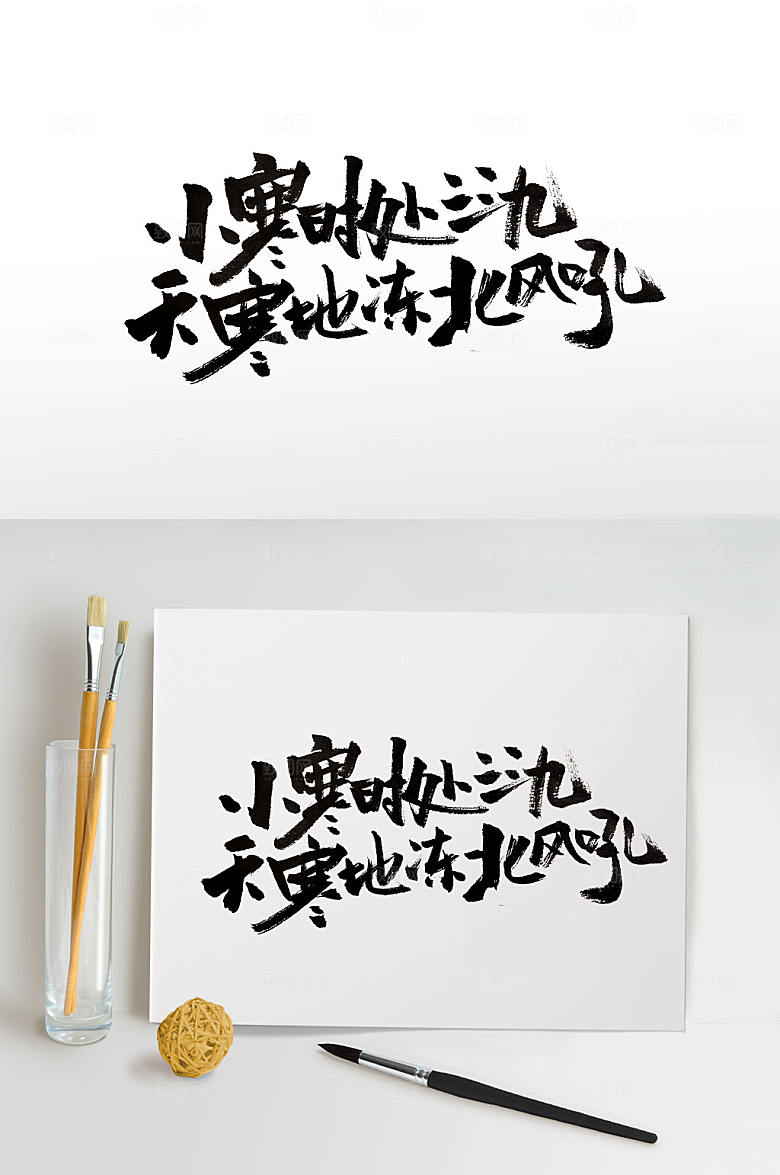 小寒时处二三九
天寒地冻北风吼
小寒时处二三九
天寒地冻北风吼